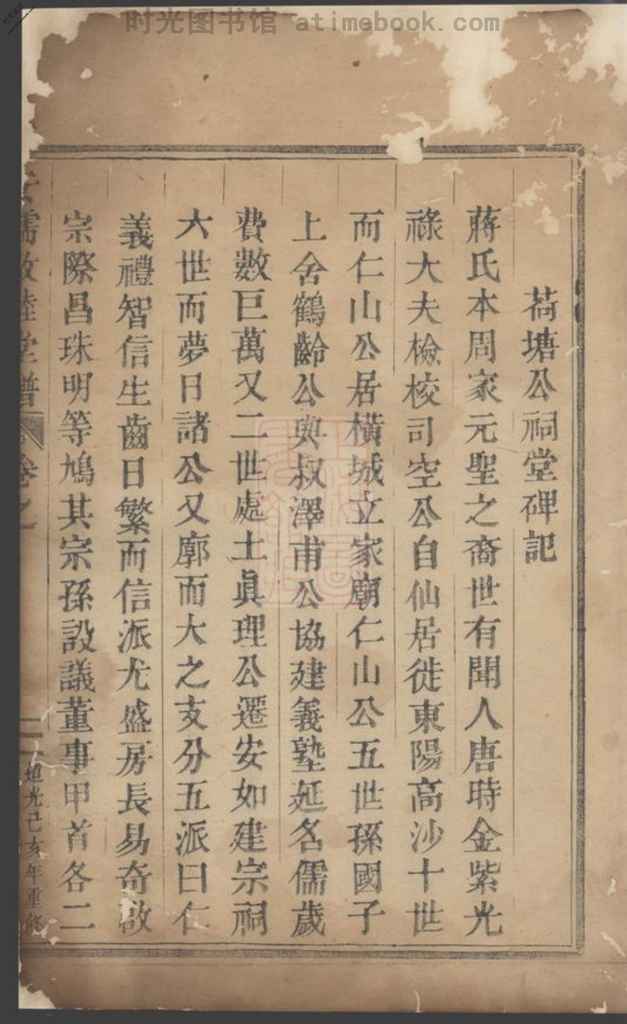 时光图书馆 atimebook.com
荷塘公祠堂碑記
蔣氏本周家元聖之裔世有聞人唐時金紫光
祿大夫檢校司空公自仙居徙東陽高沙十世
而仁山公居橫城立家廟仁山公五世孫國子
上舍鶴齡公與叔澤甫公協建義塾延名儒歲
費數巨萬又二世處士眞理公遷安如建宗祠
六世而夢日諸公又廓而大之支分五派曰仁
義禮智信生齒日繁而信派尤盛房長易奇啟
宗際昌珠明等鳩其宗孫設議董事甲首各二
儒敦睦堂譜 卷之 二 道光己亥年重修